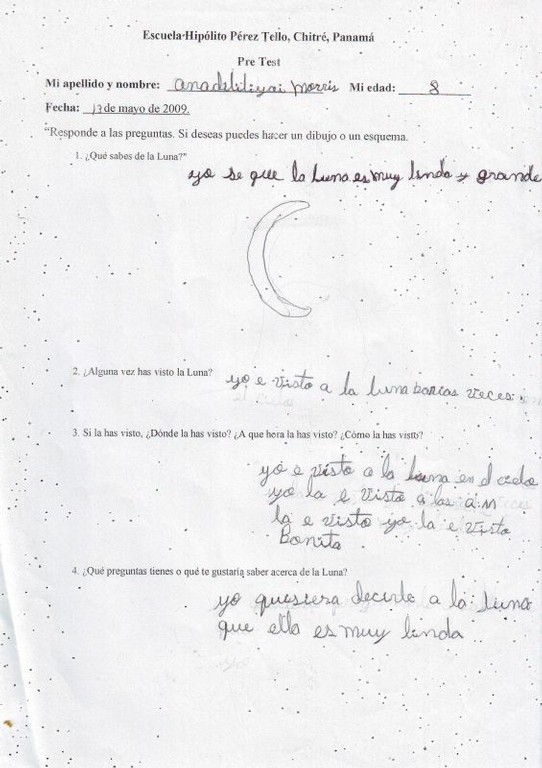 Escuela Hipólito Pérez Tello, Chitré, Panamá
Pre Test
Mi apellido y nombre: Morris Mi edad: 8
Fecha: 13 de mayo de 2009.
“Responde a las preguntas. Si deseas puedes hacer un dibujo o un esquema.
1. ¿Qué sabes de la Luna?”
yo se que la Luna es muy linda y grande
2. ¿Alguna vez has visto la Luna?
yo e visto a la luna barias veces.
3. Si la has visto, ¿Dónde la has visto? ¿A que hora la has visto? ¿Cómo la has visto?
yo e visto a la luna en el cielo
yo la e visto a las a.m
la e visto yo la e visto
Bonita
4. ¿Qué preguntas tienes o qué te gustaría saber acerca de la Luna?
yo quisiera decirle a la luna
que ella es muy linda